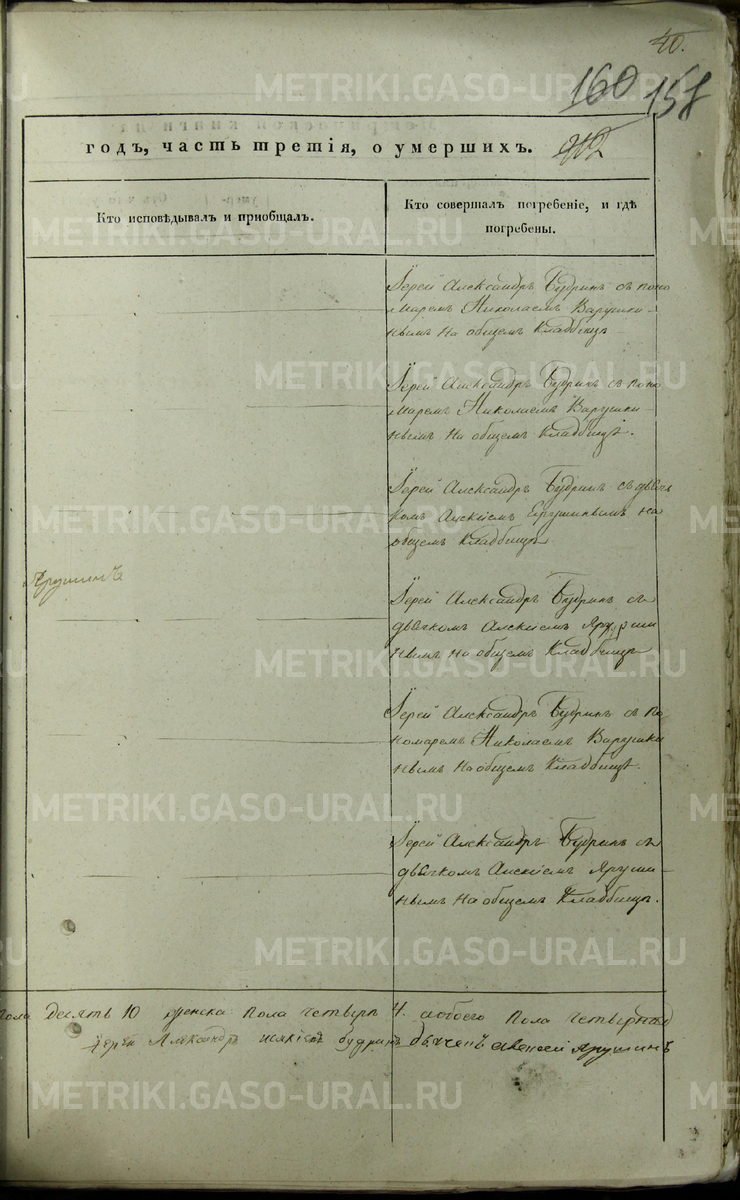 40.
160 158
годъ, часть третія, о умершихъ.
Кто исповѣдывалъ и приобщалъ.
Кто совершалъ погребеніе, и гдѣ
погребены.
Іерей Александръ Будринъ съ поно
маремъ Николаемъ Варушки-
нымъ на общемъ Кладбищѣ
Іерей Александръ Будринъ съ поно
маремъ Николаемъ Варушки
нымъ на общемъ Кладбищѣ.
Іерей Александръ Будринъ съ дьяч
комъ Алексіемъ Ярушинымъ на
общемъ Кладбищѣ
Ярушинъ
Іерей Александръ Будринъ съ
дьячкомъ Алексіемъ Яруши
нымъ на общемъ Кладбищѣ
Іерей Александръ Будринъ съ по
номаремъ Николаемъ Варушки
нымъ на общемъ Кладбищѣ.
Іерей Александръ Будринъ съ
дьячкомъ Алексіемъ Яруши-
нымъ на общемъ Кладбищѣ.
пола десять 10 женска пола четыре 4. а обоего пола
Іерей Александръ Будринъ дьячекъ Алексей Ярушинъ
METRIKI.GASO-URAL.RU